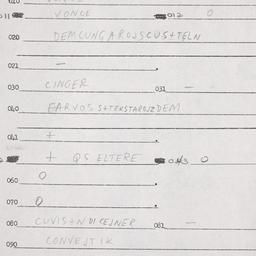 010
011 VONCE 012 0
020 DEMCUNGAROJSCUS+TELN
021 -
030 CINGER 031 -
040 FARVOS S+TEKSTAROJZDEM
041 +
+ QS ELTERE 043 0
060 0
070 0
080 CUVIS+N DI CEJNER 081 -
090 CONVEJT IK